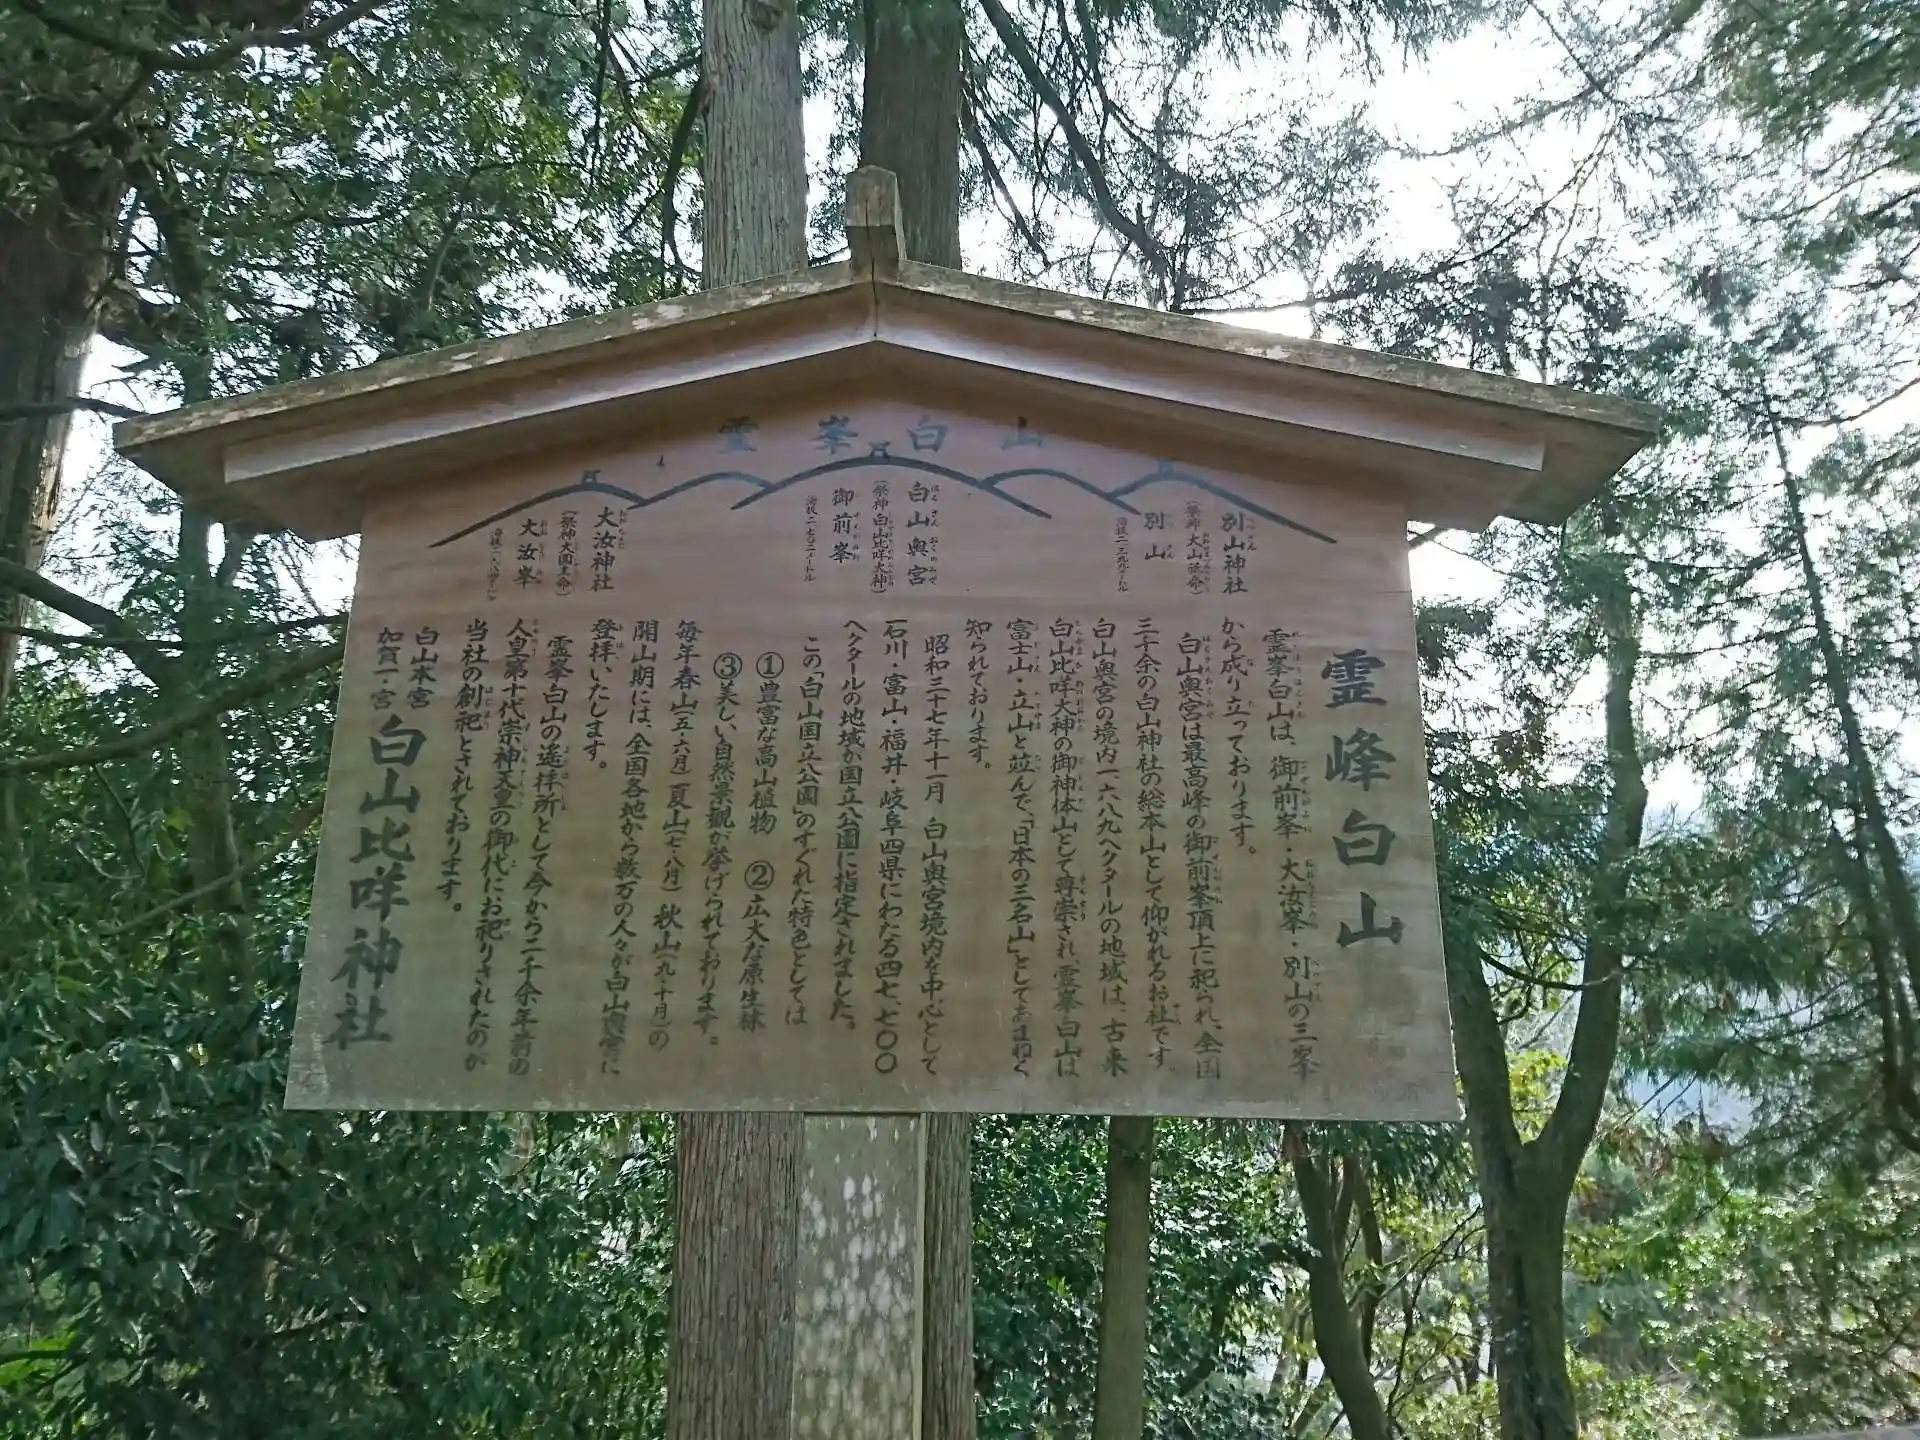 霊峯白山
別山神社
(祭神 大山祇命)
別山
海抜二三九九メートル
白山奥宮
(祭神 白山比咩大神)
御前峯
海抜二七〇二メートル
大汝神社
(祭神 大国主命)
大汝峯
霊峰白山
霊峯白山は、御前峯・大汝峯・別山の三峯
から成り立っております。
白山奥宮は最高峰の御前峯頂上に祀られ、全国
三千余の白山神社の総本山として仰がれるお社です。
白山奥宮の境内一六八九ヘクタールの地域は、古来
白山比咩大神の御神体山として尊崇され、霊峯白山は
富士山・立山と竝んで、「日本の三名山」としてあまねく
知られております。
昭和三十七年十一月 白山奥宮境内を中心として
石川・富山・福井・岐阜四県にわたる四七、七〇〇
ヘクタールの地域が国立公園に指定されました。
この「白山国立公園」のすぐれた特色としては
①豊富な高山植物 ②広大な原生林
③美しい自然景観が挙げられております。
毎年春山(五・六月)夏山(七・八月) 秋山(九・十月)の
開山期には、全国各地から数万の人々が白山奥宮に
登拝いたします。
霊峯白山の遙拝所として今から二千余年前の
人皇第十代崇神天皇の御代にお祀りされたのが
当社の創祀とされております。
白山本宮
加賀一ノ宮
白山比咩神社